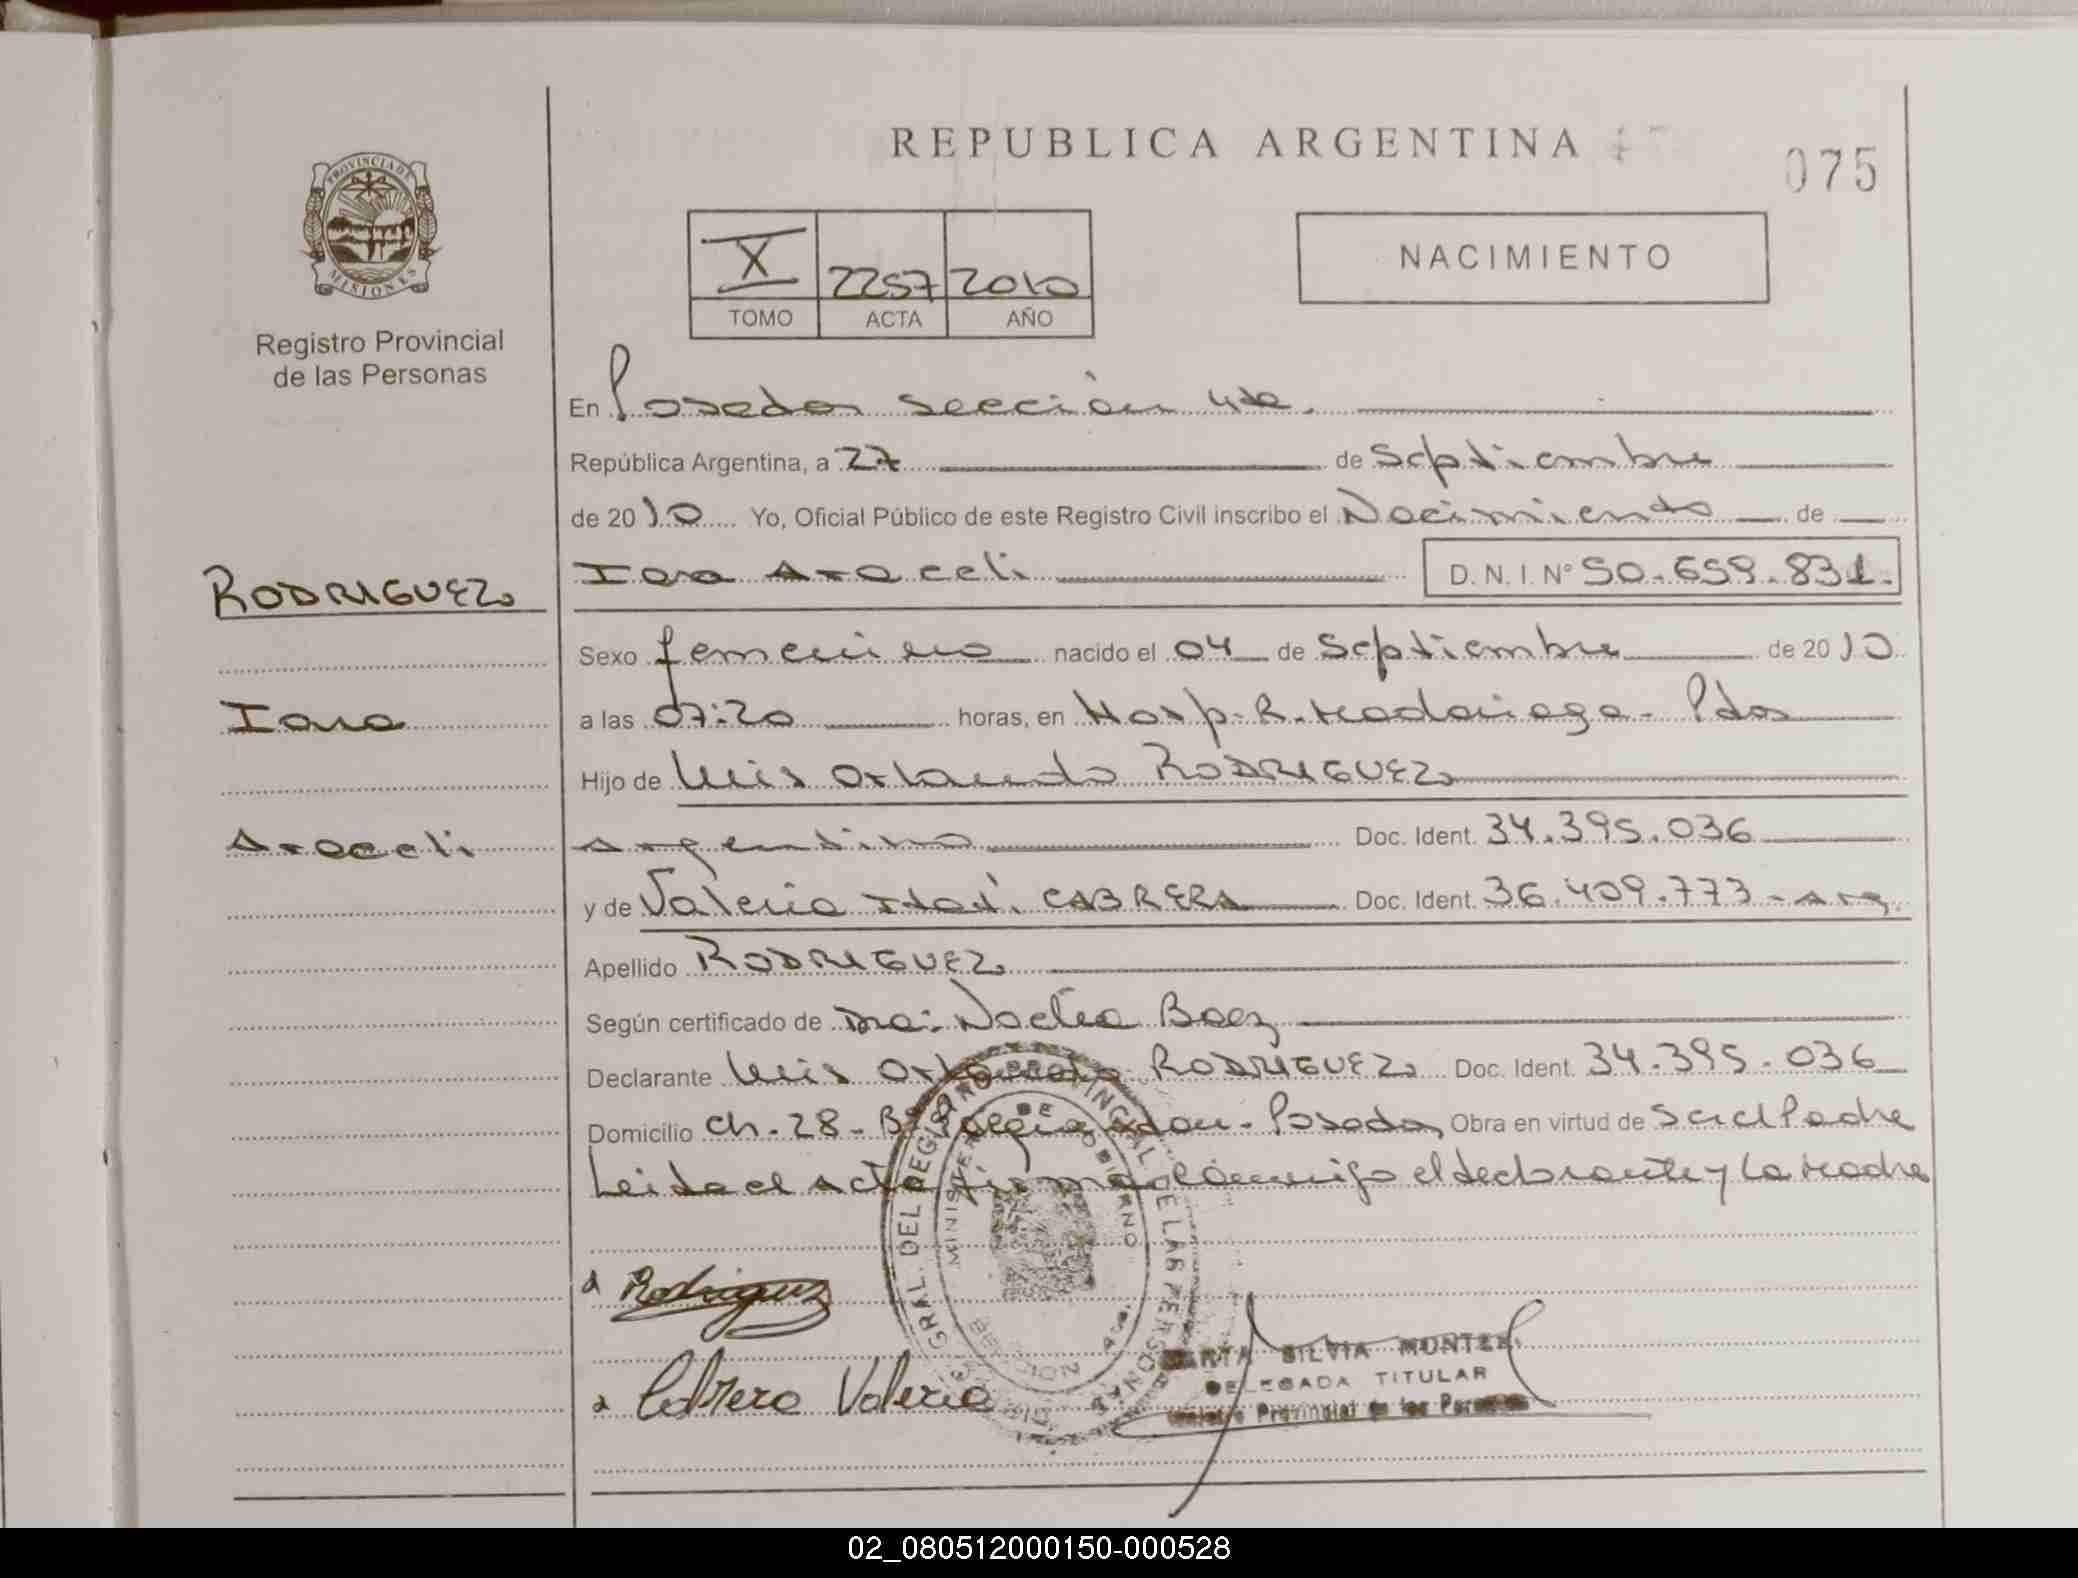 REPUBLICA ARGENTINA
075
PROVINCIA DE
MISIONES
Registro Provincial
de las Personas
X 2257 2010
TOMO ACTA AÑO
NACIMIENTO
En Posadas sección 4ta.
República Argentina, a 27 de Septiembre
de 2010 Yo, Oficial Público de este Registro Civil inscribo el Nacimiento de
RODRIGUEZ
Iara Araceli D. N. I. N° 50.659.831.
Sexo femenino nacido el 04 de Septiembre de 2010
Iara
a las 07:20 horas, en Hosp. R. Madariaga - Pdas
Hijo de Luis Orlando RODRIGUEZ
Araceli
argentino Doc. Ident. 34.395.036
y de Valeria Itatí CABRERA Doc. Ident. 36.409.773 - arg.
Apellido RODRIGUEZ
Según certificado de Dra: Noelia Baez
Declarante Luis Orlando RODRIGUEZ Doc. Ident. 34.395.036
Domicilio Ch. 28 - Bº - Posadas Obra en virtud de ser el Padre
Leida el acta firman conmigo el declarante y la Madre
Rodriguez
Cabrera Valeria
GRAL. DEL REGISTRO PROVINCIAL DE LAS PERSONAS
MINISTERIO DE GOBIERNO
MARTA SILVIA MONTIEL
DELEGADA TITULAR
Registro Provincial de las Personas
02_080512000150-000528